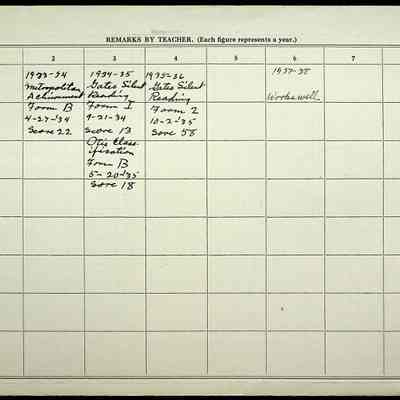 REMARKS BY TEACHER. (Each figure represents a year.)
2 3 4 5 6 7
1933-34
Metropolitan
Achievement
Form B
4-27-'34
Score 22
1934-35
Gates Silent
Reading
Form I
9-21-34
Score 13
Otis Class
ification
Form B
5-20-'35
Score 18
1935-36
Gates Silent
Reading
Form 2
10-2-'35
Score 58
1937-38
Works well.